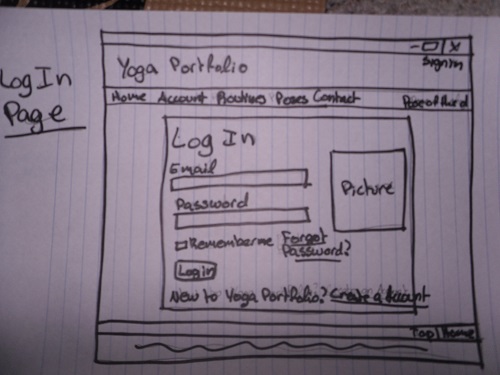 Log In
Page
Sign in
Yoga Portfolio
Home Account Routines Poses Contact
Log In
Email
Password
Picture
Remember me Forgot
Password?
Login
New to Yoga Portfolio? Create a Account
Top Home